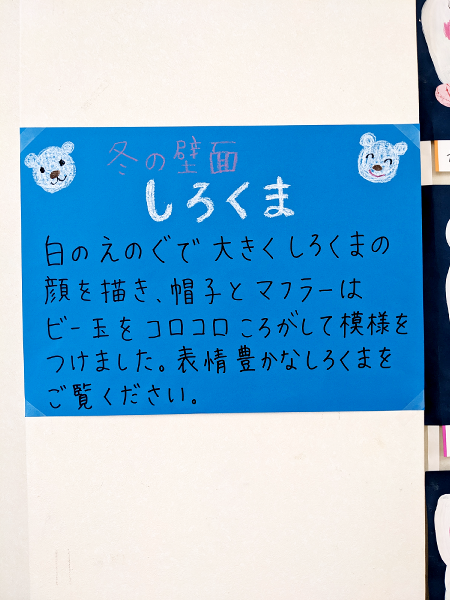 冬の壁面
しろくま
白のえのぐで大きくしろくまの
顔を描き、帽子とマフラーは
ビー玉をコロコロころがして模様を
つけました。表情豊かなしろくまを
ご覧ください。